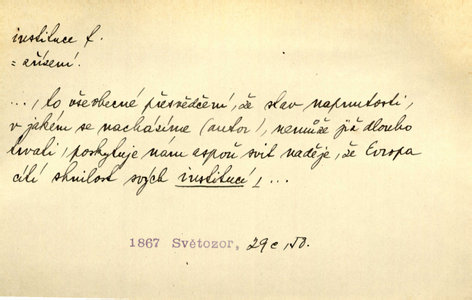 instituce f.
= zřízení.
..., to všeobecné přesvědčení, že stav napnutosti,
v jakém se nacházíme (autor), nemůže již dlouho
trvati, poskytuje nám aspoň svit naděje, že Evropa
cítí shnilost svých institucí, ...
1867 Světozor, 29 c,